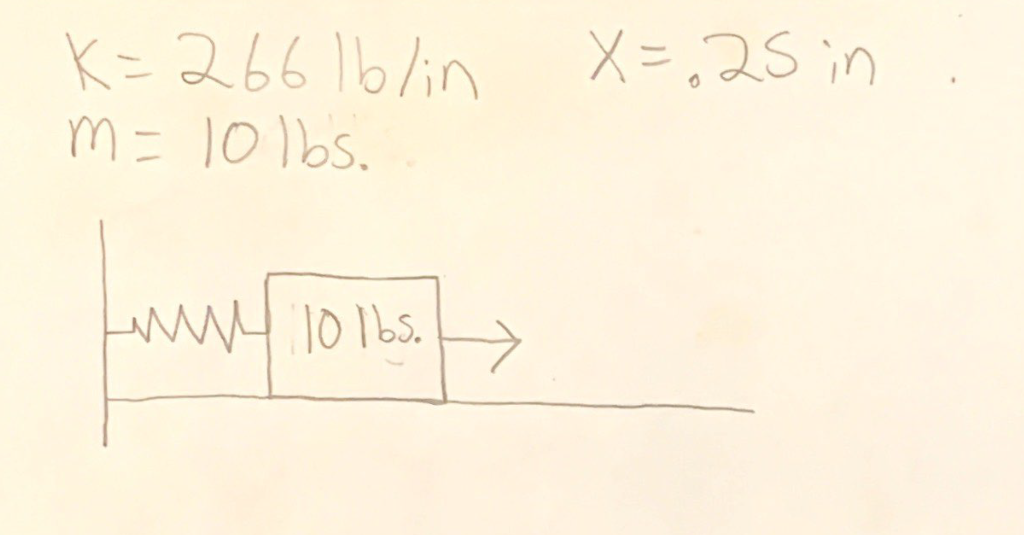 K= 266 lb/in X= .25 in
m= 10 lbs.
10 lbs.